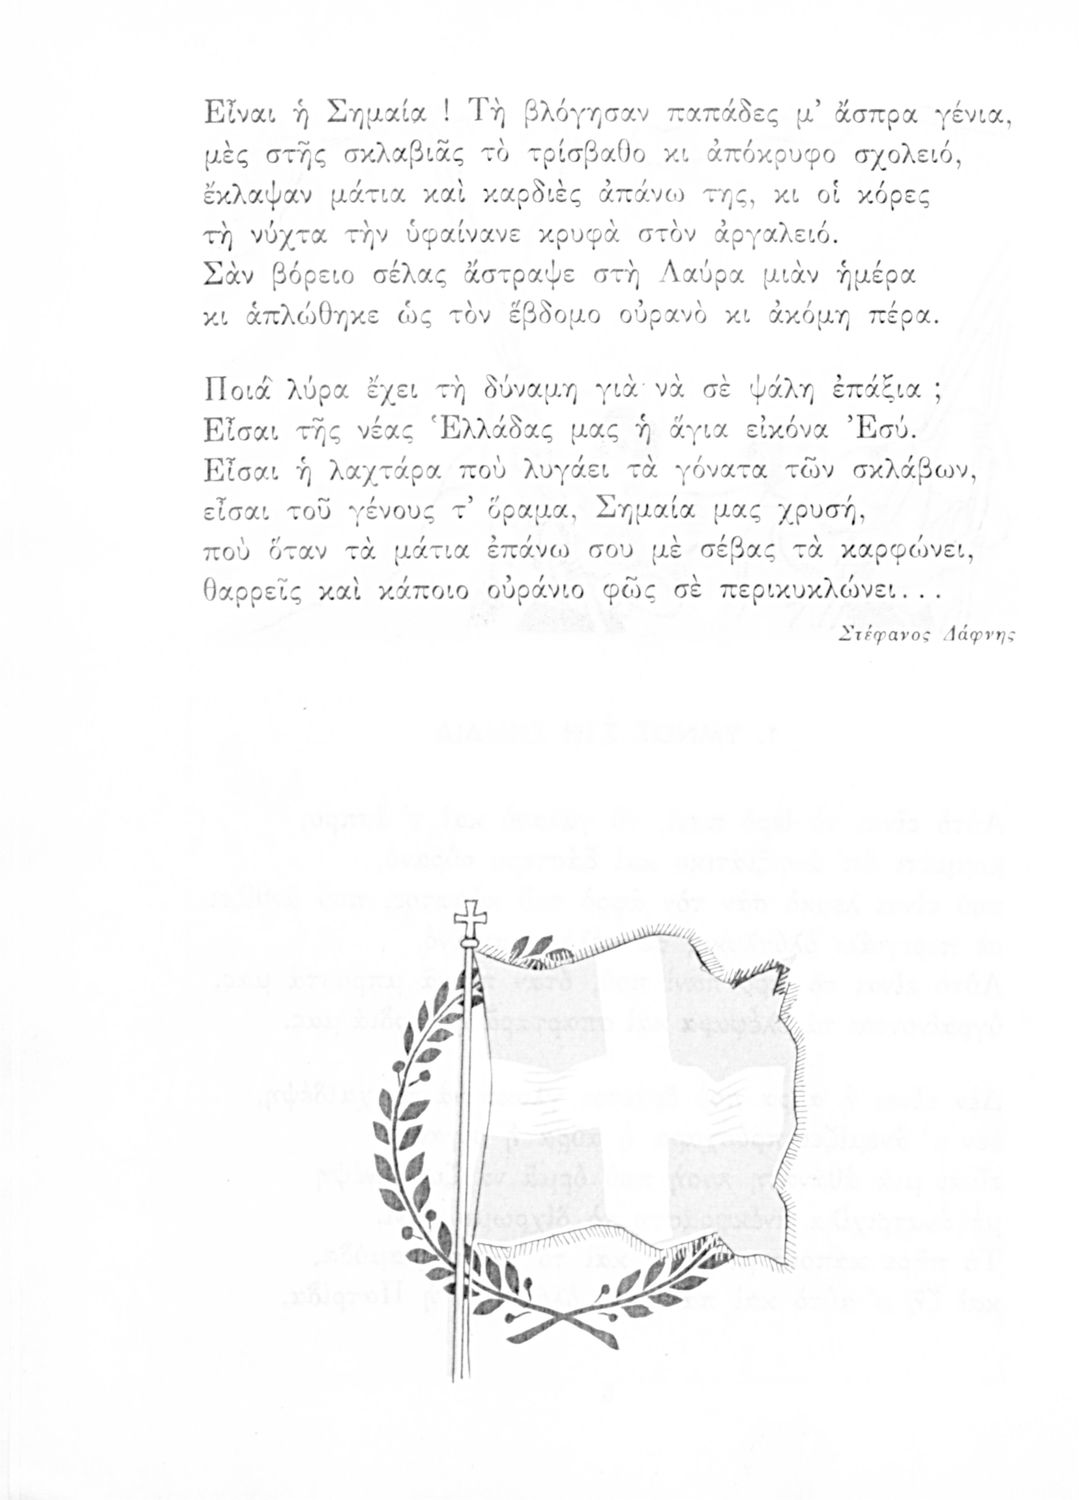 Εἶναι ἡ Σημαία ! Τὴ βλόγησαν παπάδες μ’ ἄσπρα γένια,
μὲς στῆς σκλαβιᾶς τὸ τρίσβαθο κι ἀπόκρυφο σχολειό,
ἔκλαψαν μάτια καὶ καρδιὲς ἀπάνω της, κι οἱ κόρες
τὴ νύχτα τὴν ὑφαίνανε κρυφὰ στὸν ἀργαλειό.
Σὰν βόρειο σέλας ἄστραψε στὴ Λαύρα μιὰν ἡμέρα
κι ἁπλώθηκε ὡς τὸν ἕβδομο οὐρανὸ κι ἀκόμη πέρα.
Ποιὰ λύρα ἔχει τὴ δύναμη γιὰ νὰ σὲ ψάλη ἐπάξια ;
Εἶσαι τῆς νέας Ἑλλάδας μας ἡ ἅγια εἰκόνα Ἐσύ.
Εἶσαι ἡ λαχτάρα ποὺ λυγάει τὰ γόνατα τῶν σκλάβων,
εἶσαι τοῦ γένους τ’ ὅραμα, Σημαία μας χρυσή,
ποὺ ὅταν τὰ μάτια ἐπάνω σου μὲ σέβας τὰ καρφώνει,
θαρρεῖς καὶ κάποιο οὐράνιο φῶς σὲ περικυκλώνει...
Στέφανος Δάφνης